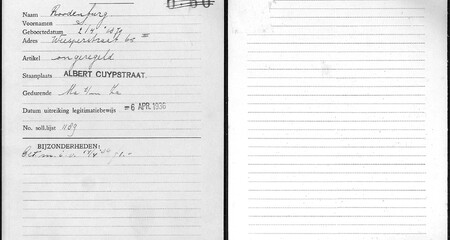 Naam Roodenburg
Voornamen S
Geboortedatum
Adres Weesperstraat 60 III
Artikel ongeregeld
Staanplaats ALBERT CUYPSTRAAT.
Gedurende Ma t/m Za
Datum uitreiking legitimatiebewijs -6 APR. 1936
No. soll.lijst 1189
BIJZONDERHEDEN: